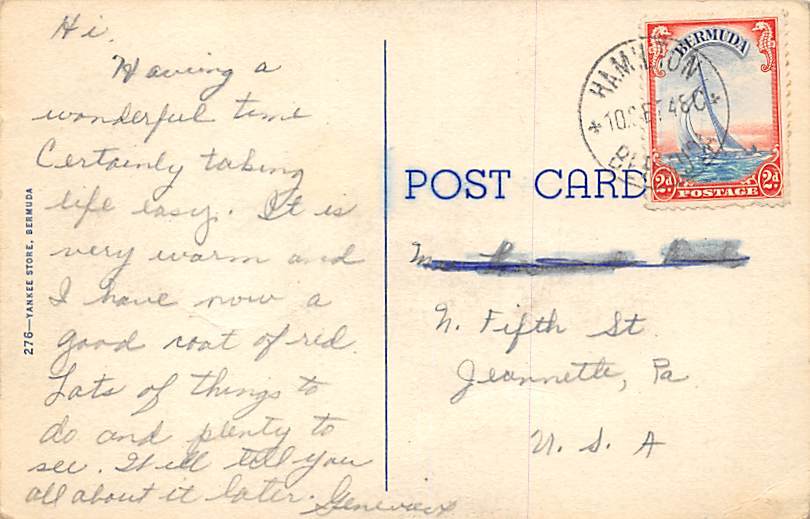 Hi,
Having a
wonderful time
Certainly taking
life easy. It is
very warm and
I have now a
good coat of red.
Lots of things to
do and plenty to
see. Will tell you
all about it later.
276—YANKEE STORE, BERMUDA
POST CARD
BERMUDA
2d POSTAGE 2d
HAMILTON
BERMUDA
N. Fifth St.
Jeannette, Pa.
U. S. A